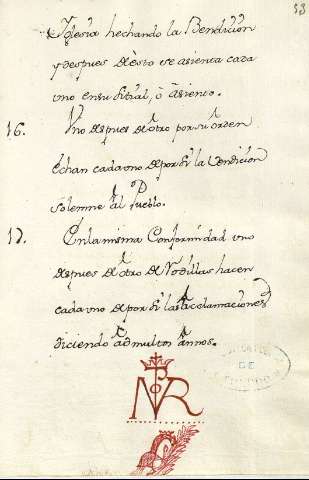 53
Iglesia hechando la Bendicion
y despues de esto se asienta cada
uno en su sitial, ò asiento.
16. Uno despues de otro por su orden
echan cada uno de por si la Vendicion
solemne al Pueblo.
17. En la misma Conformidad uno
despues de otro de Rodillas hacen
cada uno de por si las aclamaciones
diciendo ad multos annos.
DE